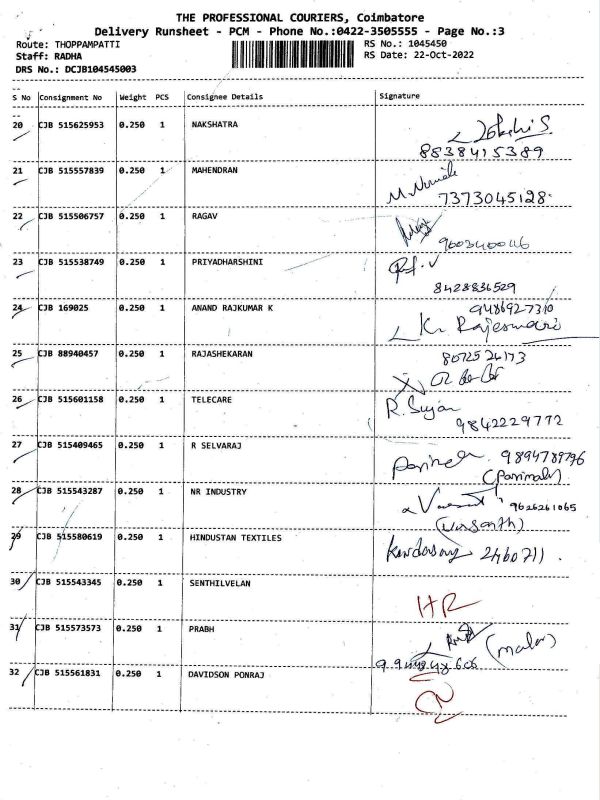 THE PROFESSIONAL COURIERS, Coimbatore
Delivery Runsheet - PCM - Phone No.:0422-3505555 - Page No.:3
Route: THOPPAMPATTI
RS No.: 1045450
Staff: RADHA
RS Date: 22-Oct-2022
DRS No.: DCJB104545003
S No Consignment No Weight PCS Consignee Details Signature
20 CJB 515625953 0.250 1 NAKSHATRA
8838415389
21 CJB 515557839 0.250 1 MAHENDRAN
7373045128
22 CJB 515506757 0.250 1 RAGAV
23 CJB 515538749 0.250 1 PRIYADHARSHINI
8428836529
24 CJB 169025 0.250 1 ANAND RAJKUMAR K
9486927310
K. Rajeswari
25 CJB 88940457 0.250 1 RAJASHEKARAN
26 CJB 515601158 0.250 1 TELECARE
R. Sujan
9842229772
27 CJB 515409465 0.250 1 R SELVARAJ
9894789796
(Parimala)
28 CJB 515543287 0.250 1 NR INDUSTRY
9626261065
(Vasanth)
29 CJB 515580619 0.250 1 HINDUSTAN TEXTILES
2460711.
30 CJB 515543345 0.250 1 SENTHILVELAN
HR
31 CJB 515573573 0.250 1 PRABH
(malar)
32 CJB 515561831 0.250 1 DAVIDSON PONRAJ